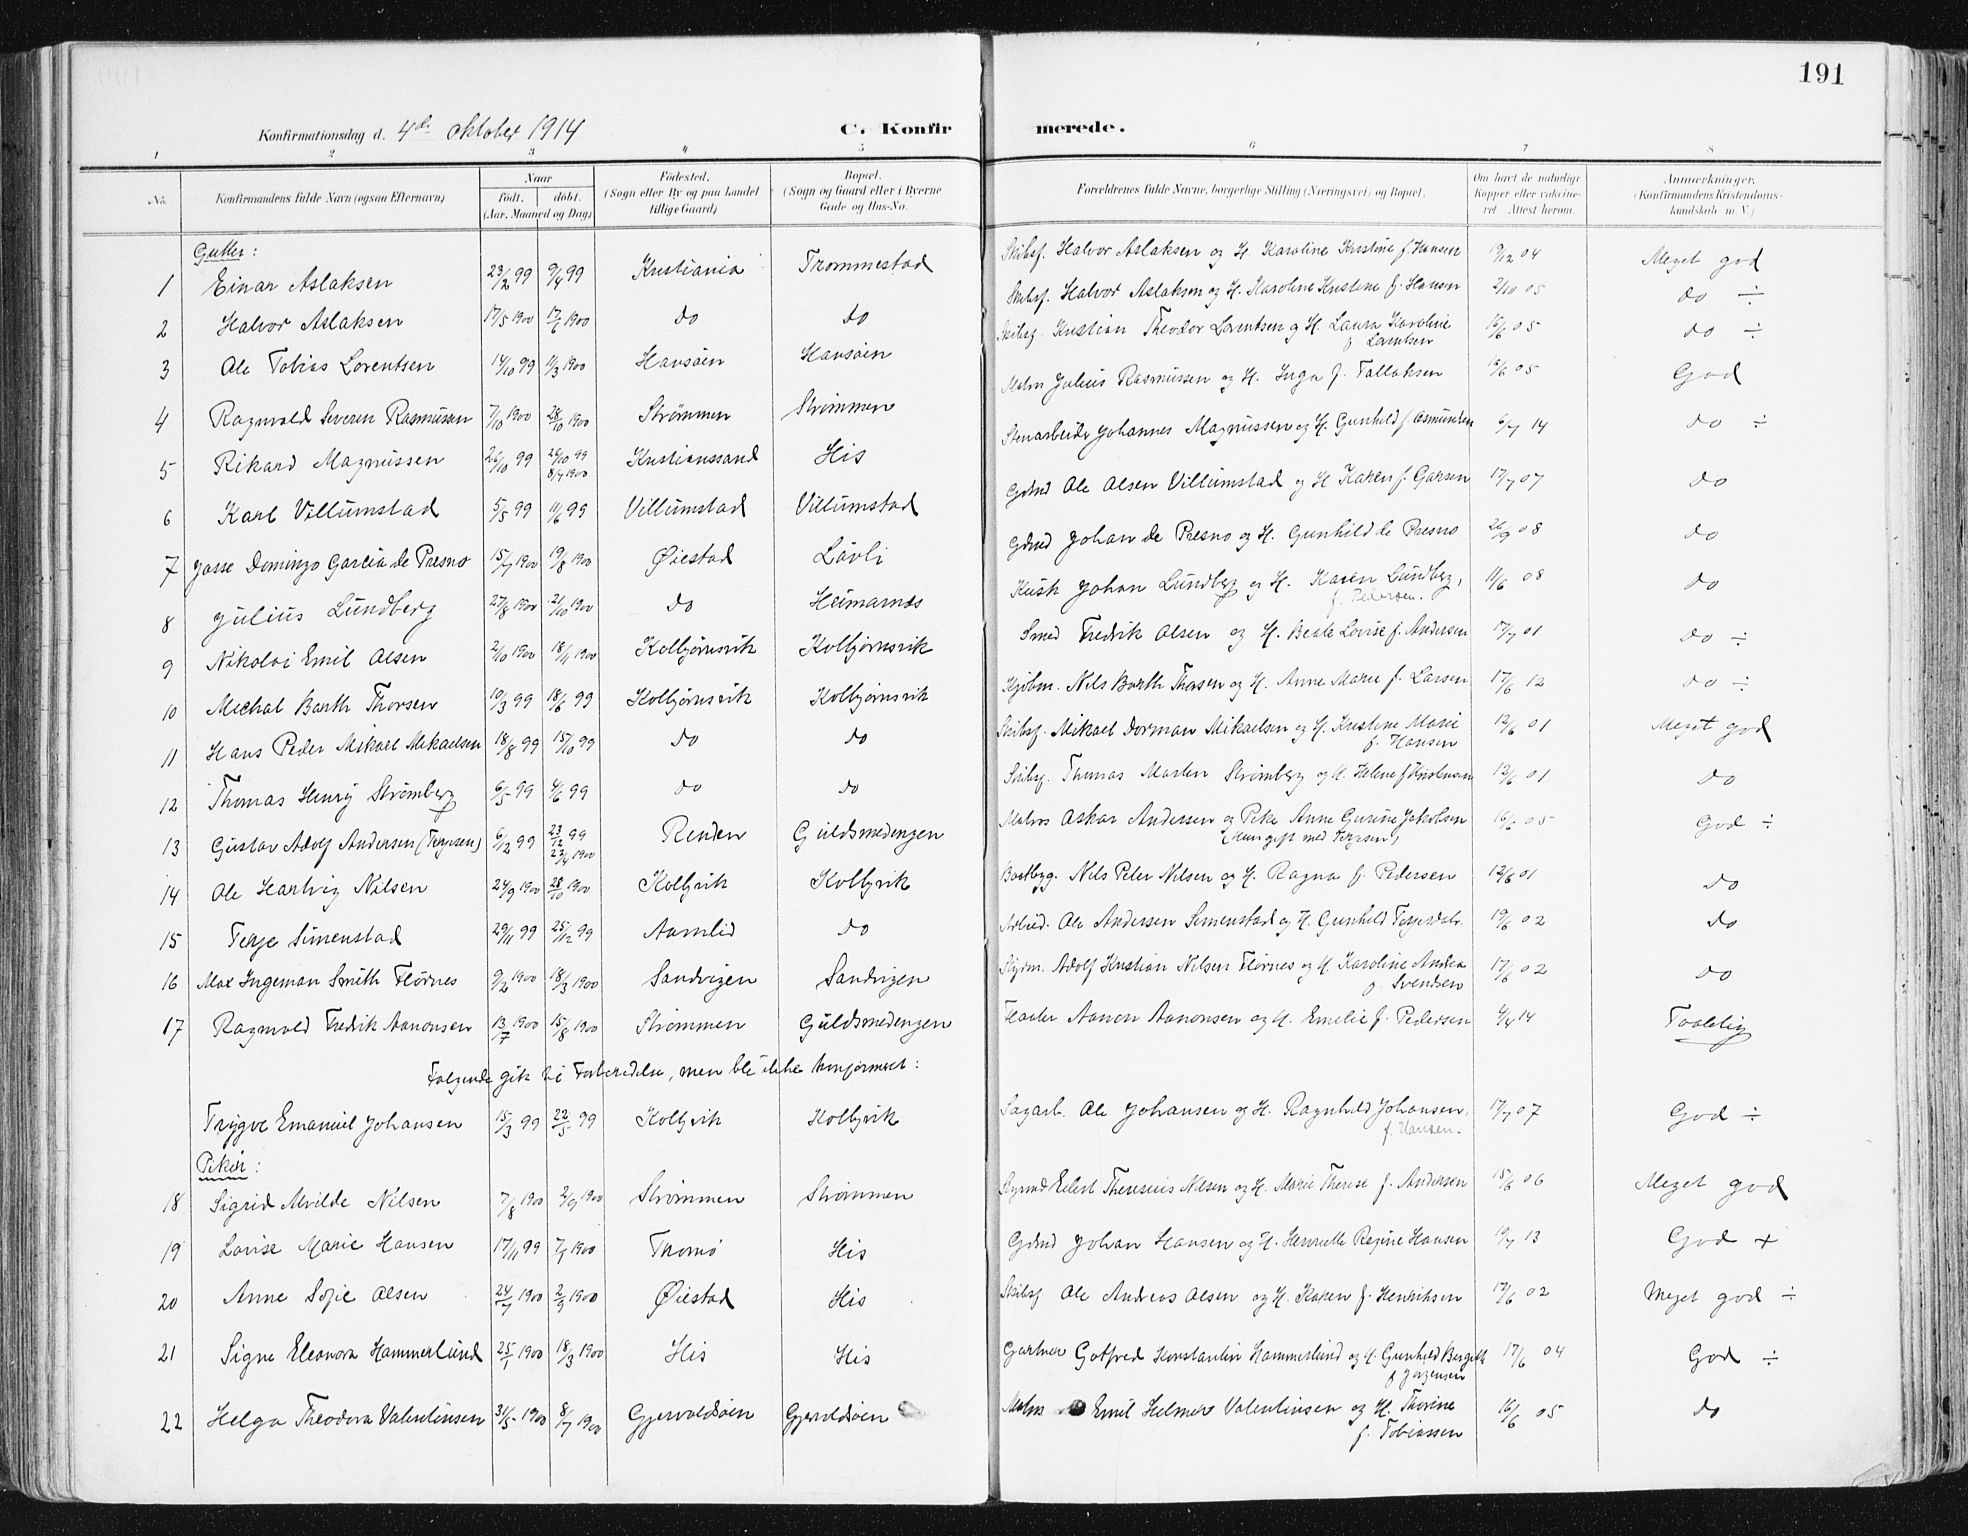 191
Konfirmationsdag d. 4de oktober 1914 C. Konfir merede.
1 2 3 4 5 6 7 8
No. Konfirmandens fulde Navn (ogsaa Efternavn) Naar født. døbt. (Aar, Maaned og Dag) Fødested. (Sogn eller By og paa Landet tillige Gaard) Bopæl. (Sogn og Gaard eller i Byerne Gade og Hus-No. Forældrenes fulde Navne, borgerlige Stilling (Næringsvei) og Bopæl. Om havt de naturlige Kopper eller vaccineret. Attest herom. Anmærkninger. (Konfirmandens Kristendomskundskab m. V.)
Gutter:
1 Einar Aslaksen 23/2 99 9/4 99 Kristiania Trommestad Skibsf. Halvor Aslaksen og H. Karoline Kristine f. Hansen 19/12 04 Meget god
2 Halvor Aslaksen 17/5 1900 17/6 1900 do do Skibsf. Halvor Aslaksen og H. Karoline Kristine f. Hansen 2/10 05 do ÷
3 Ole Tobias Lorentsen 14/10 99 11/3 1900 Havsøen Havsøen Skibsf. Kristian Theodor Lorentsen og H. Laura Karoline f. Lorentsen 16/6 05 do ÷
4 Ragnvald Severin Rasmussen 7/10 1900 28/10 1900 Strømmen Strømmen Matros Julius Rasmussen og H. Inga f. Tallaksen 16/6 05 God
5 Rikard Magnussen 26/10 99 26/10 99 8/7 1900 Kristianssand His Stenarbeider Johannes Magnussen og H. Gunhild f. Osmundsen 6/7 14 do ÷
6 Karl Villumstad 5/5 99 11/6 99 Villumstad Villumstad Gdmd Ole Olsen Villumstad og H Karen f. Garsen 17/7 07 do
7 Josse Domingo Garcia de Presno 15/7 1900 19/8 1900 Øiestad Løvli Gdmd Johan de Presno og H. Gunhild de Presno 26/9 08 do
8 Julius Lundberg 27/8 1900 21/10 1900 do Heimarnes Kusk Johan Lundberg og H. Karen Lundberg, f. Pedersen. 11/6 08 do
9 Nikolai Emil Olsen 2/10 1900 18/11 1900 Kolbjørnsvik Kolbjørnsvik Smed Fredrik Olsen og H. Beate Lovise f. Andersen 17/7 01 do ÷
10 Michal Barth Thorsen 10/3 99 18/6 99 Kolbjørnsvik Kolbjørnsvik Kjøbm. Nils Barth Thorsen og H. Anne Marie f. Larsen 17/6 12 do ÷
11 Hans Peder Mikael Mikaelsen 18/8 99 15/10 99 do do Skibsf. Mikael Dorman Mikaelsen og H. Kristine Marie f. Hansen 12/6 01 Meget god
12 Thomas Henry Strømberg 6/5 99 4/6 99 do do Skibsf. Thomas Martin Strømberg og H. Helene f Kristensen 12/6 01 do
13 Gustav Adolf Andersen (Terjesen) 6/12 99 23/12 99 22/4 1900 Renden Guldsmedengen Matros Oskar Andersen og Pike Anne Gurine Jakobsen (Hun gift med Terjesen) 16/6 05 God ÷
14 Ole Hartvig Nilsen 24/9 1900 28/10 1900 Kolbjvik Kolbjvik Baatbyg. Nils Peter Nilsen og H. Ragna f. Pedersen 12/6 01 do
15 Terje Simenstad 29/11 99 25/12 99 Aamlid do Arbeid. Ole Andersen Simenstad og H. Gunhild Terjesdatr. 19/6 02 do
16 Max Ingeman Smith Flørnes 9/2 1900 18/3 1900 Sandvigen Sandvigen Styrm. Adolf Kristian Nilsen Flørnes og H. Karoline Andrea f. Svendsen 17/6 02 do
17 Ragnvald Fredrik Aanonsen 13/7 1900 15/8 1900 Strømmen Guldsmedengen Aanon Aanonsen og H. Emelie f. Pedersen 4/4 14 Taalelig
Følgende gik til Forberedelse, men ble ikke konfirmeret:
Trygve Emanuel Johansen 15/3 99 22/5 99 Kolbjvik Kolbjvik Sagarb. Ole Johansen og H. Ragnhild Johansen, f. Hansen. 17/7 07 God ÷
Piker:
18 Sigrid Alvilde Nilsen 7/8 1900 2/9 1900 Strømmen Strømmen Eilert Theresius Nilsen og H. Marie Therese f. Andersen 15/6 06 Meget god
19 Lovise Marie Hansen 17/11 99 7/1 1900 Tromø His Gdmd Johan Hansen og H. Henriette Regine Hansen 19/7 13 God +
20 Anne Sofie Olsen 24/7 1900 2/9 1900 Øiestad His Skibsf Ole Andreas Olsen og H. Karen f. Henriksen 17/6 02 Meget god ÷
21 Signe Eleonora Hammerlund 25/1 1900 18/3 1900 His His Gartner Gotfred Konstantin Hammerlund og H. Gunhild Bergith f Jørgensen 17/6 04 God ÷
22 Helga Theodora Valentinsen 31/5 1900 8/7 1900 Gjervoldsøen Gjervoldsøen Matros Emil Helmer Valentinsen og H. Thorine f. Tobiassen 16/6 05 do